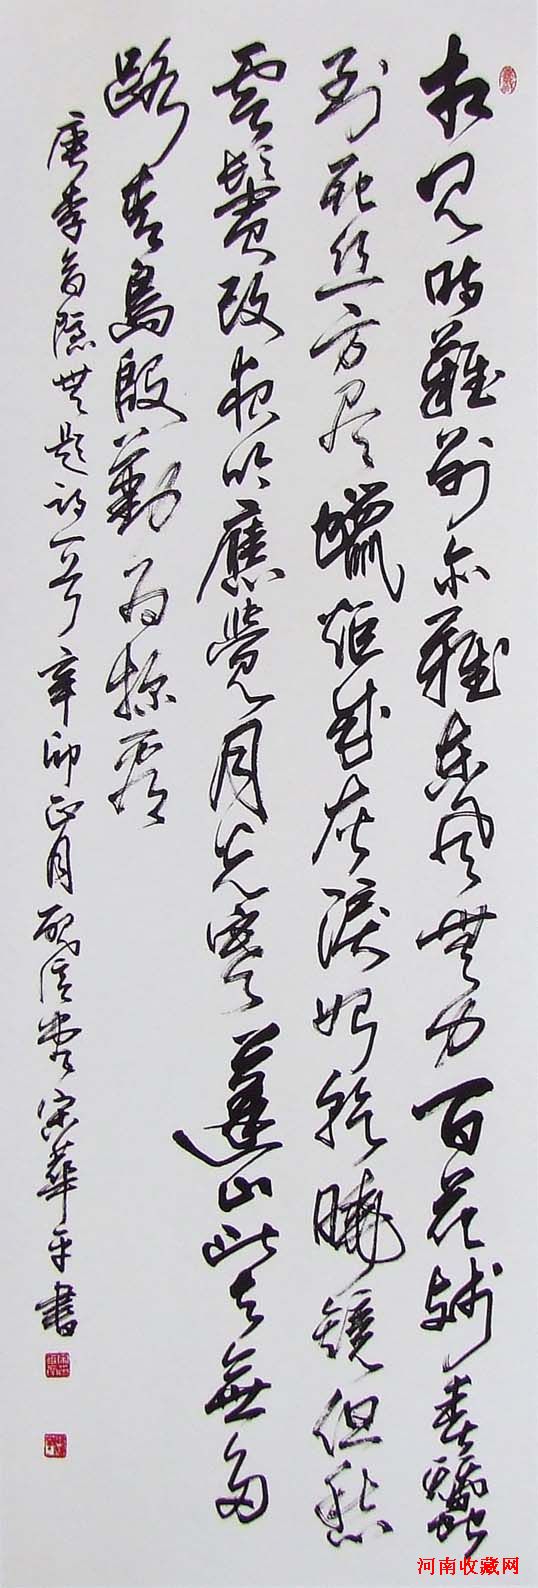 相見時難別亦難東風無力百花殘春蠶
到死絲方盡蠟炬成灰淚始乾曉鏡但愁
雲鬢改夜吟應覺月光寒蓬山此去無多
路青鳥殷勤為探看
唐李商隱無題詩一首辛卯正月宋華平書
河南收藏网